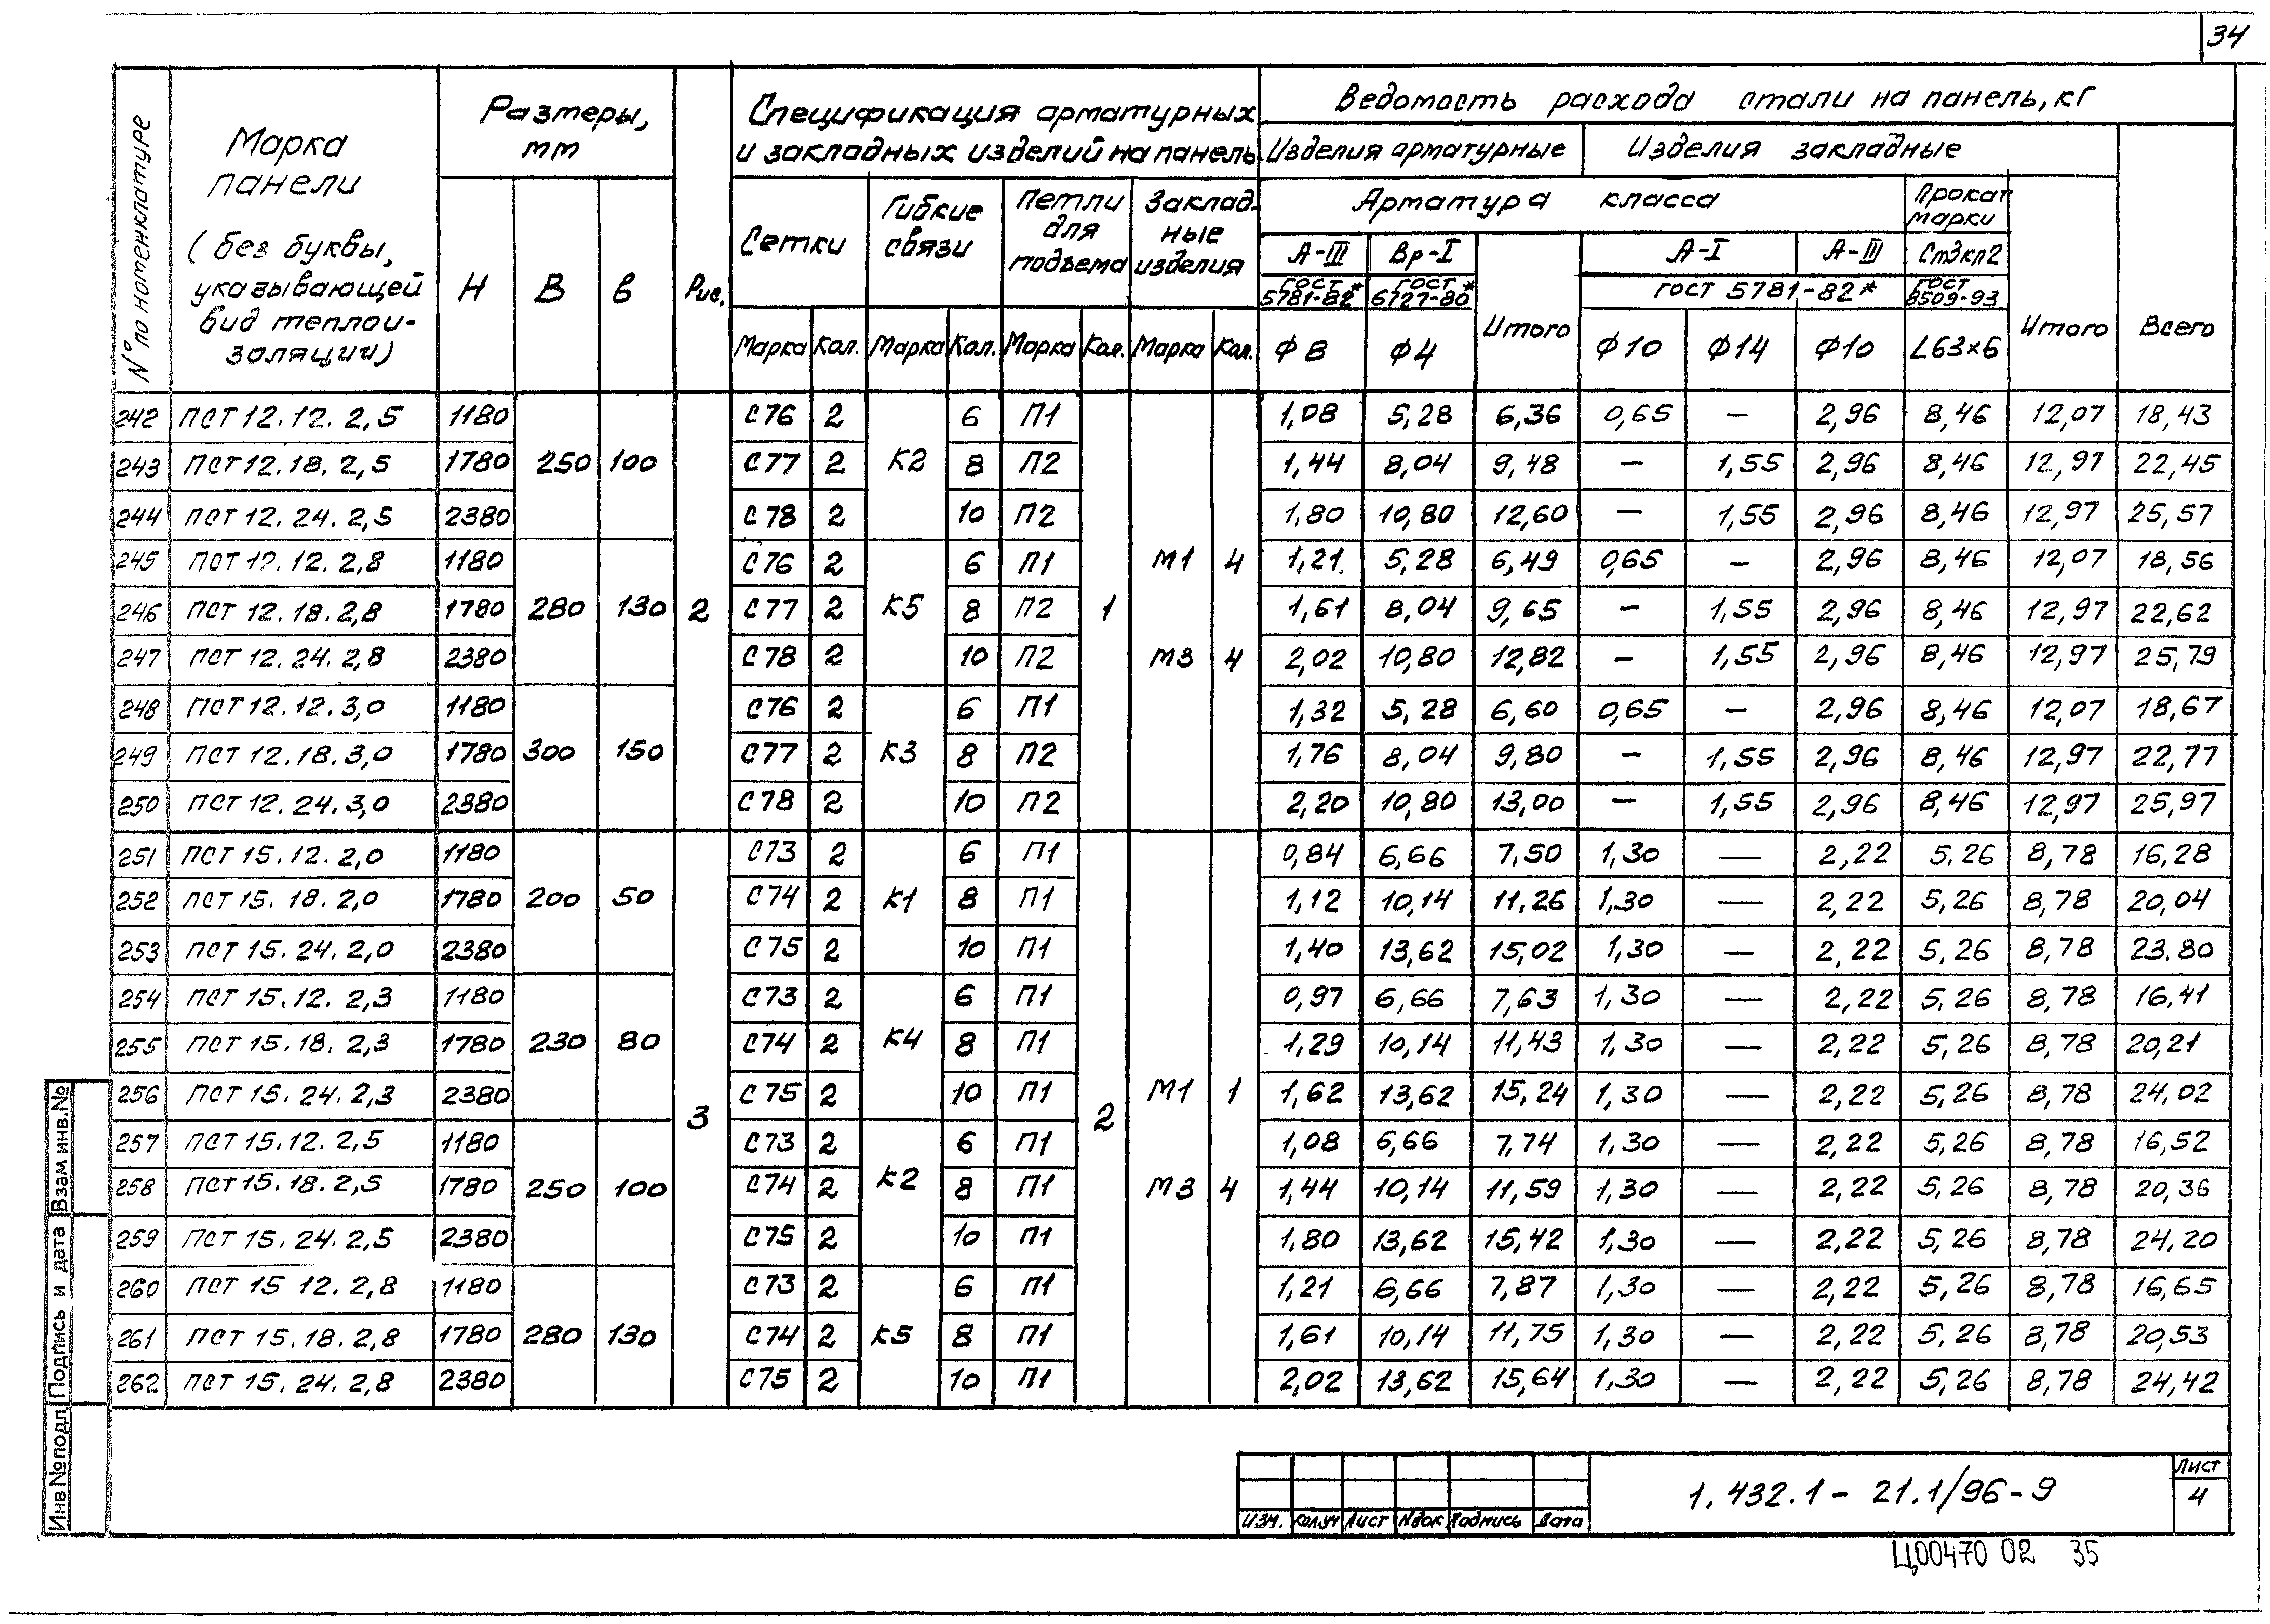 34
№ по номенклатуре
Марка панели (без буквы, указывающей вид теплоизоляции)
Размеры, мм
Спецификация арматурных и закладных изделий на панель
Ведомость расхода стали на панель, кг
Изделия арматурные Изделия закладные
Сетки Гибкие связи Петли для подъема Закладные изделия
Арматура класса Прокат марки
Н В в Рис.
А-III Вр-I Итого А-I А-III Ст3кп2 Итого Всего
ГОСТ 5781-82* ГОСТ 6727-80* ГОСТ 5781-82* ГОСТ 8509-93
Марка Кол. Марка Кол. Марка Кол. Марка Кол. Ф8 Ф4 Ф10 Ф14 Ф10 L63×6
242 ПСТ 12.12.2,5 1180 С76 2 6 П1 1,08 5,28 6,36 0,65 — 2,96 8,46 12,07 18,43
243 ПСТ 12.18.2,5 1780 250 100 С77 2 К2 8 П2 1,44 8,04 9,48 — 1,55 2,96 8,46 12,97 22,45
244 ПСТ 12.24.2,5 2380 С78 2 10 П2 1,80 10,80 12,60 — 1,55 2,96 8,46 12,97 25,57
245 ПСТ 12.12.2,8 1180 С76 2 6 П1 М1 4 1,21 5,28 6,49 0,65 — 2,96 8,46 12,07 18,56
246 ПСТ 12.18.2,8 1780 280 130 2 С77 2 К5 8 П2 1 1,61 8,04 9,65 — 1,55 2,96 8,46 12,97 22,62
247 ПСТ 12.24.2,8 2380 С78 2 10 П2 М3 4 2,02 10,80 12,82 — 1,55 2,96 8,46 12,97 25,79
248 ПСТ 12.12.3,0 1180 С76 2 6 П1 1,32 5,28 6,60 0,65 — 2,96 8,46 12,07 18,67
249 ПСТ 12.18.3,0 1780 300 150 С77 2 К3 8 П2 1,76 8,04 9,80 — 1,55 2,96 8,46 12,97 22,77
250 ПСТ 12.24.3,0 2380 С78 2 10 П2 2,20 10,80 13,00 — 1,55 2,96 8,46 12,97 25,97
251 ПСТ 15.12.2,0 1180 С73 2 6 П1 0,84 6,66 7,50 1,30 — 2,22 5,26 8,78 16,28
252 ПСТ 15.18.2,0 1780 200 50 С74 2 К1 8 П1 1,12 10,14 11,26 1,30 — 2,22 5,26 8,78 20,04
253 ПСТ 15.24.2,0 2380 С75 2 10 П1 1,40 13,62 15,02 1,30 — 2,22 5,26 8,78 23.80
254 ПСТ 15.12.2,3 1180 С73 2 6 П1 0,97 6,66 7,63 1,30 — 2,22 5,26 8,78 16,41
255 ПСТ 15.18.2,3 1780 230 80 С74 2 К4 8 П1 1,29 10,14 11,43 1,30 — 2,22 5,26 8,78 20,21
256 ПСТ 15.24.2,3 2380 3 С75 2 10 П1 2 М1 1 1,62 13,62 15,24 1,30 — 2,22 5,26 8,78 24,02
257 ПСТ 15.12.2,5 1180 С73 2 6 П1 1,08 6,66 7,74 1,30 — 2,22 5,26 8,78 16,52
258 ПСТ 15.18.2,5 1780 250 100 С74 2 К2 8 П1 М3 4 1,44 10,14 11,59 1,30 — 2,22 5,26 8,78 20,36
259 ПСТ 15.24.2,5 2380 С75 2 10 П1 1,80 13,62 15,42 1,30 — 2,22 5,26 8,78 24,20
260 ПСТ 15 12.2,8 1180 С73 2 6 П1 1,21 6,66 7,87 1,30 — 2,22 5,26 8,78 16,65
261 ПСТ 15.18.2,8 1780 280 130 С74 2 К5 8 П1 1,61 10,14 11,75 1,30 — 2,22 5,26 8,78 20,53
262 ПСТ 15.24.2,8 2380 С75 2 10 П1 2,02 13,62 15,64 1,30 — 2,22 5,26 8,78 24,42
Инв №подл Подпись и дата Взам инв.№
Изм. Колуч Лист Nдок Подпись Дата
1.432.1-21.1/96-9
Лист
4
Ц00470 02 35